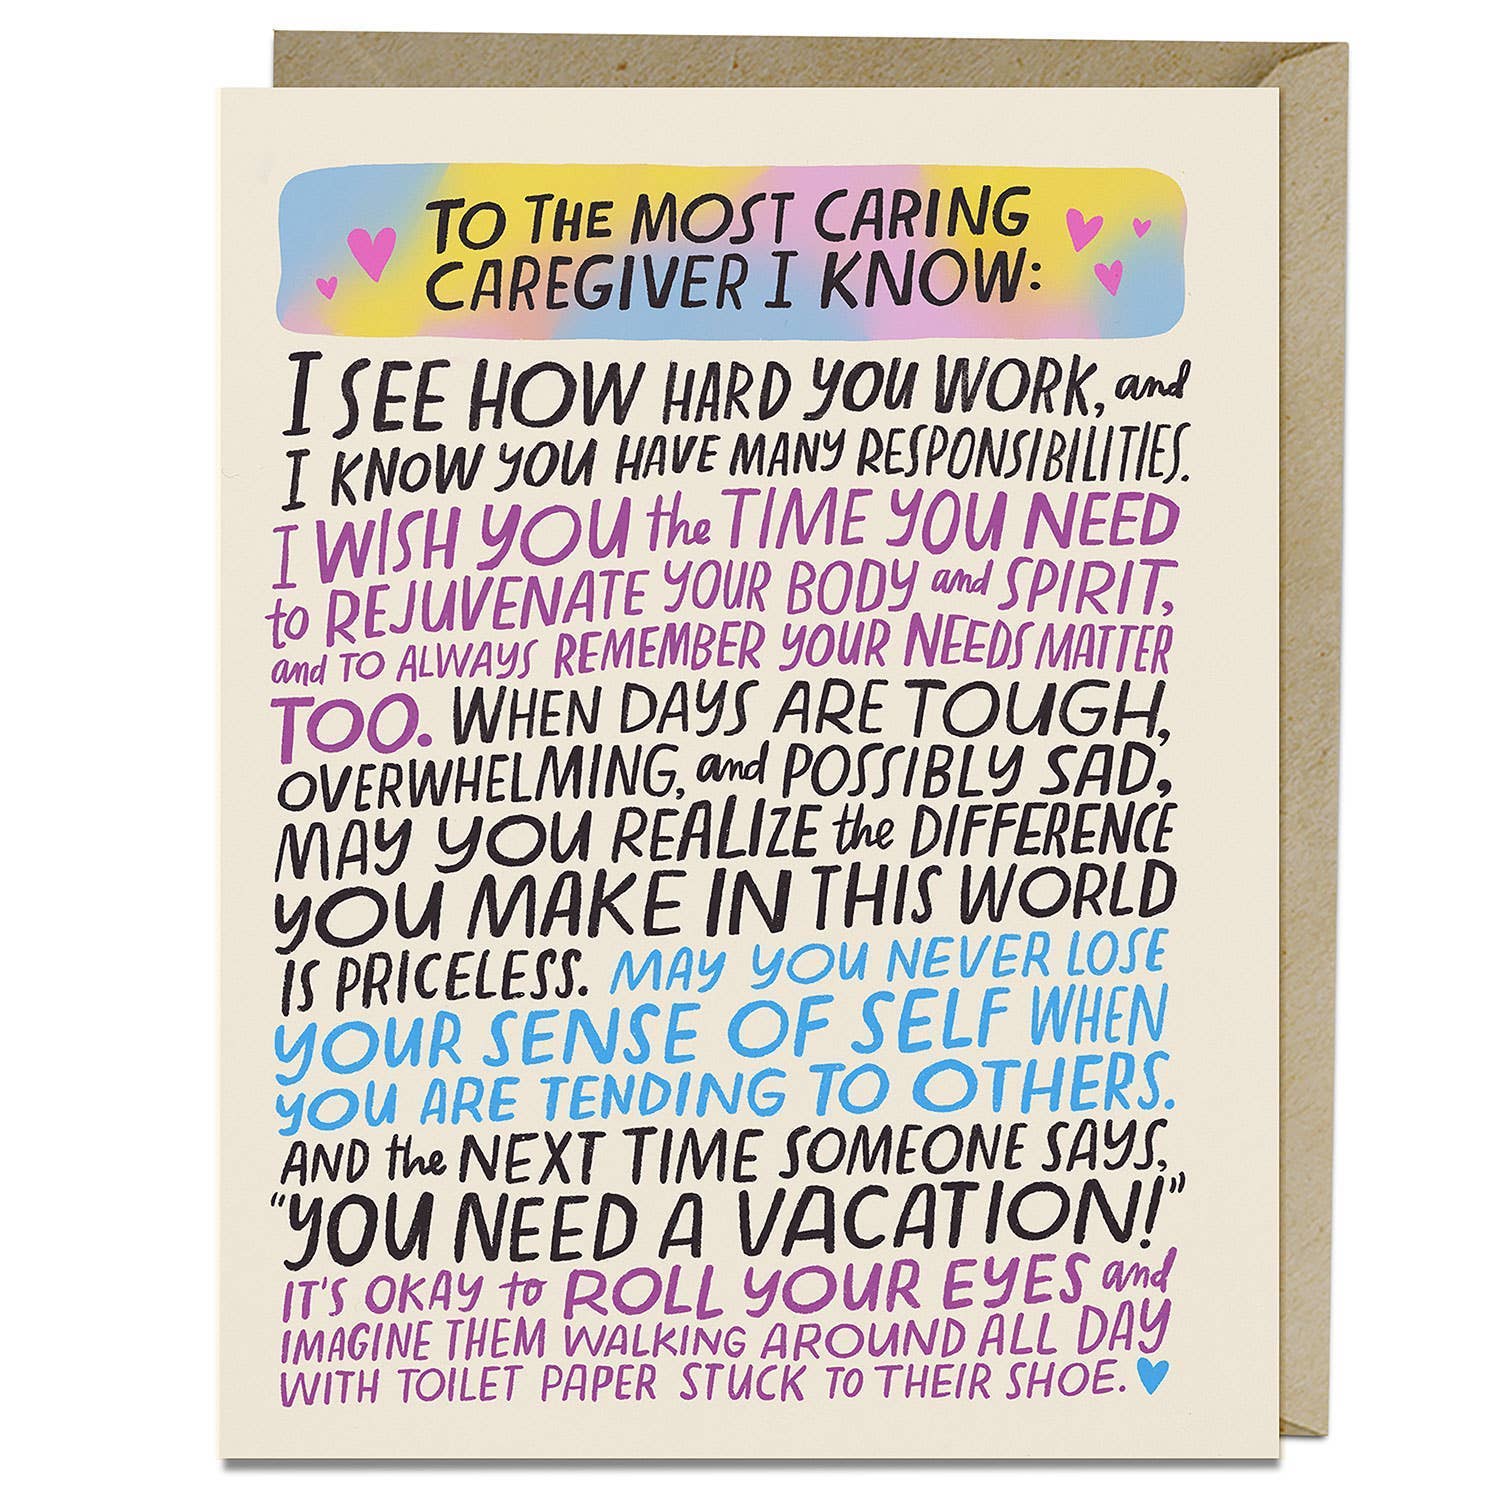 TO THE MOST CARING
CAREGIVER I KNOW:
I SEE HOW HARD YOU WORK, and
I KNOW YOU HAVE MANY RESPONSIBILITIES.
I WISH YOU the TIME YOU NEED
to REJUVENATE YOUR BODY and SPIRIT,
and TO ALWAYS REMEMBER YOUR NEEDS MATTER
TOO. WHEN DAYS ARE TOUGH,
OVERWHELMING, and POSSIBLY SAD,
MAY YOU REALIZE the DIFFERENCE
YOU MAKE IN THIS WORLD
IS PRICELESS. MAY YOU NEVER LOSE
YOUR SENSE OF SELF WHEN
YOU ARE TENDING TO OTHERS.
AND the NEXT TIME SOMEONE SAYS,
“YOU NEED A VACATION!”
IT'S OKAY to ROLL YOUR EYES and
IMAGINE THEM WALKING AROUND ALL DAY
WITH TOILET PAPER STUCK TO THEIR SHOE.